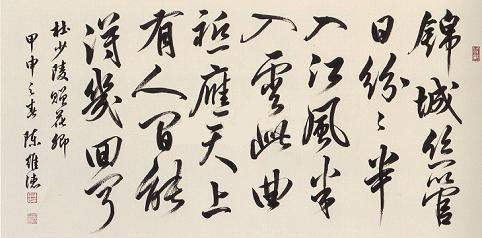 錦城丝管
日紛々半
入江風半
入雲此曲
祗應天上
有人間能
得幾回聞
杜少陵贈花卿
甲申之春 陳維德